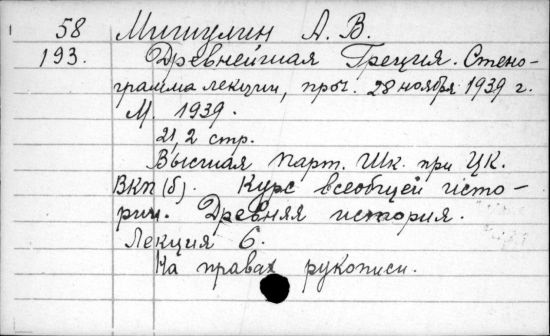 58 Мишулин А. В.
193. Древнейшая Греция. Стено-
грамма лекции, проч. 28 ноября 1939 г.
М. 1939.
21, 2 стр.
Высшая Парт. Шк. при ЦК.
ВКП(б). Курс всеобщей исто-
рии. Древняя история.
Лекция 6.
На правах рукописи.